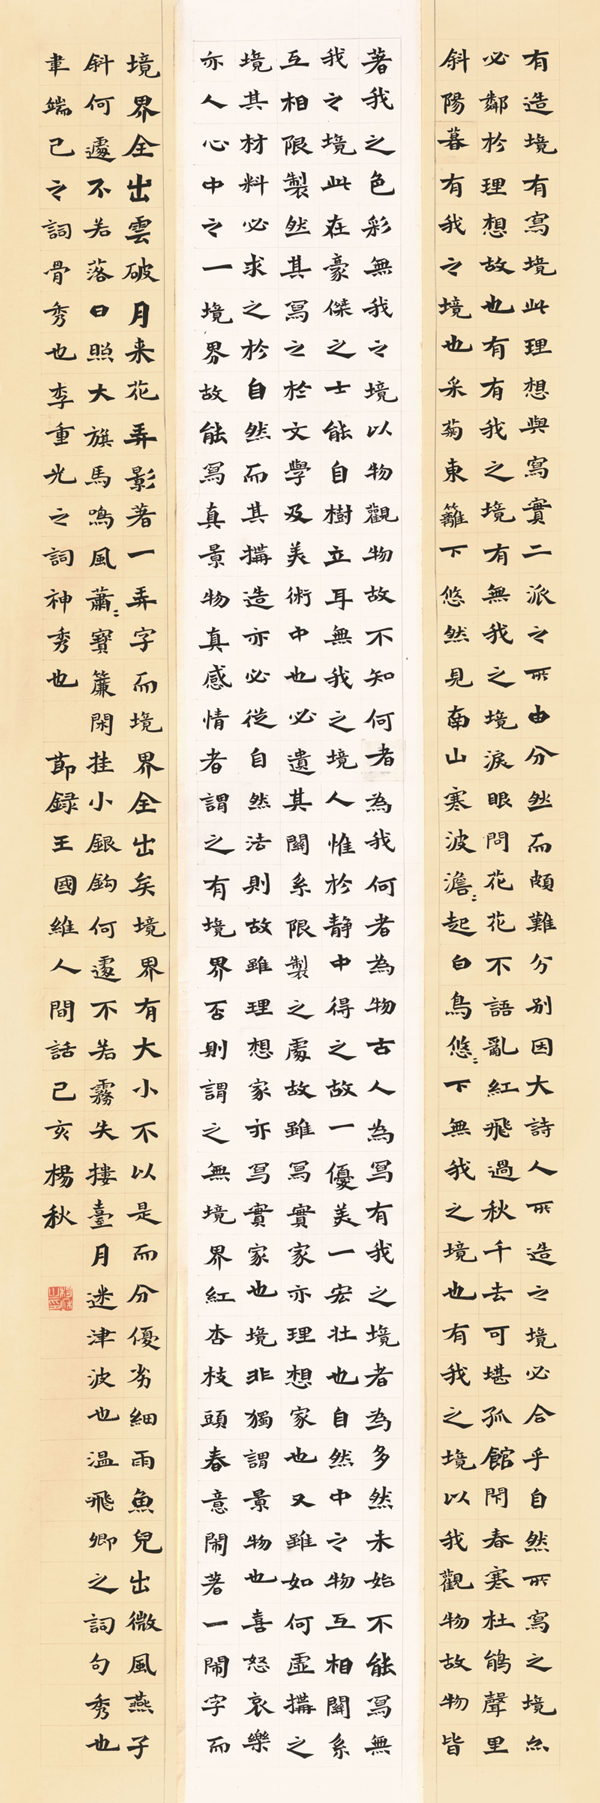 有造境有寫境此理想與寫實二派之所由分然而頗難分別因大詩人所造之境必合乎自然所寫之境亦
必鄰於理想故也有有我之境有無我之境淚眼問花花不語亂紅飛過秋千去可堪孤館閑春寒杜鵑聲里
斜陽暮有我之境也采菊東籬下悠然見南山寒波澹〻起白鳥悠〻下無我之境也有我之境以我觀物故物皆
著我之色彩無我之境以物觀物故不知何者為我何者為物古人為寫有我之境者為多然未始不能寫無
我之境此在豪傑之士能自樹立耳無我之境人惟於靜中得之故一優美一宏壯也自然中之物互相關系
互相限製然其寫之於文學及美術中也必遺其關系限製之處故雖寫實家亦理想家也又雖如何虛搆之
境其材料必求之於自然而其搆造亦必從自然法則故雖理想家亦寫實家也境非獨謂景物也喜怒哀樂
亦人心中之一境界故能寫真景物真感情者謂之有境界否則謂之無境界紅杏枝頭春意鬧著一鬧字而
境界全出雲破月来花弄影著一弄字而境界全出矣境界有大小不以是而分優劣細雨魚兒出微風燕子
斜何遽不若落日照大旗馬鳴風蕭〻寶簾閑挂小銀鈎何遽不若霧失摟臺月迷津波也温飛卿之詞句秀也
韋端己之詞骨秀也李重光之詞神秀也 節録王國維人間話己亥楊秋